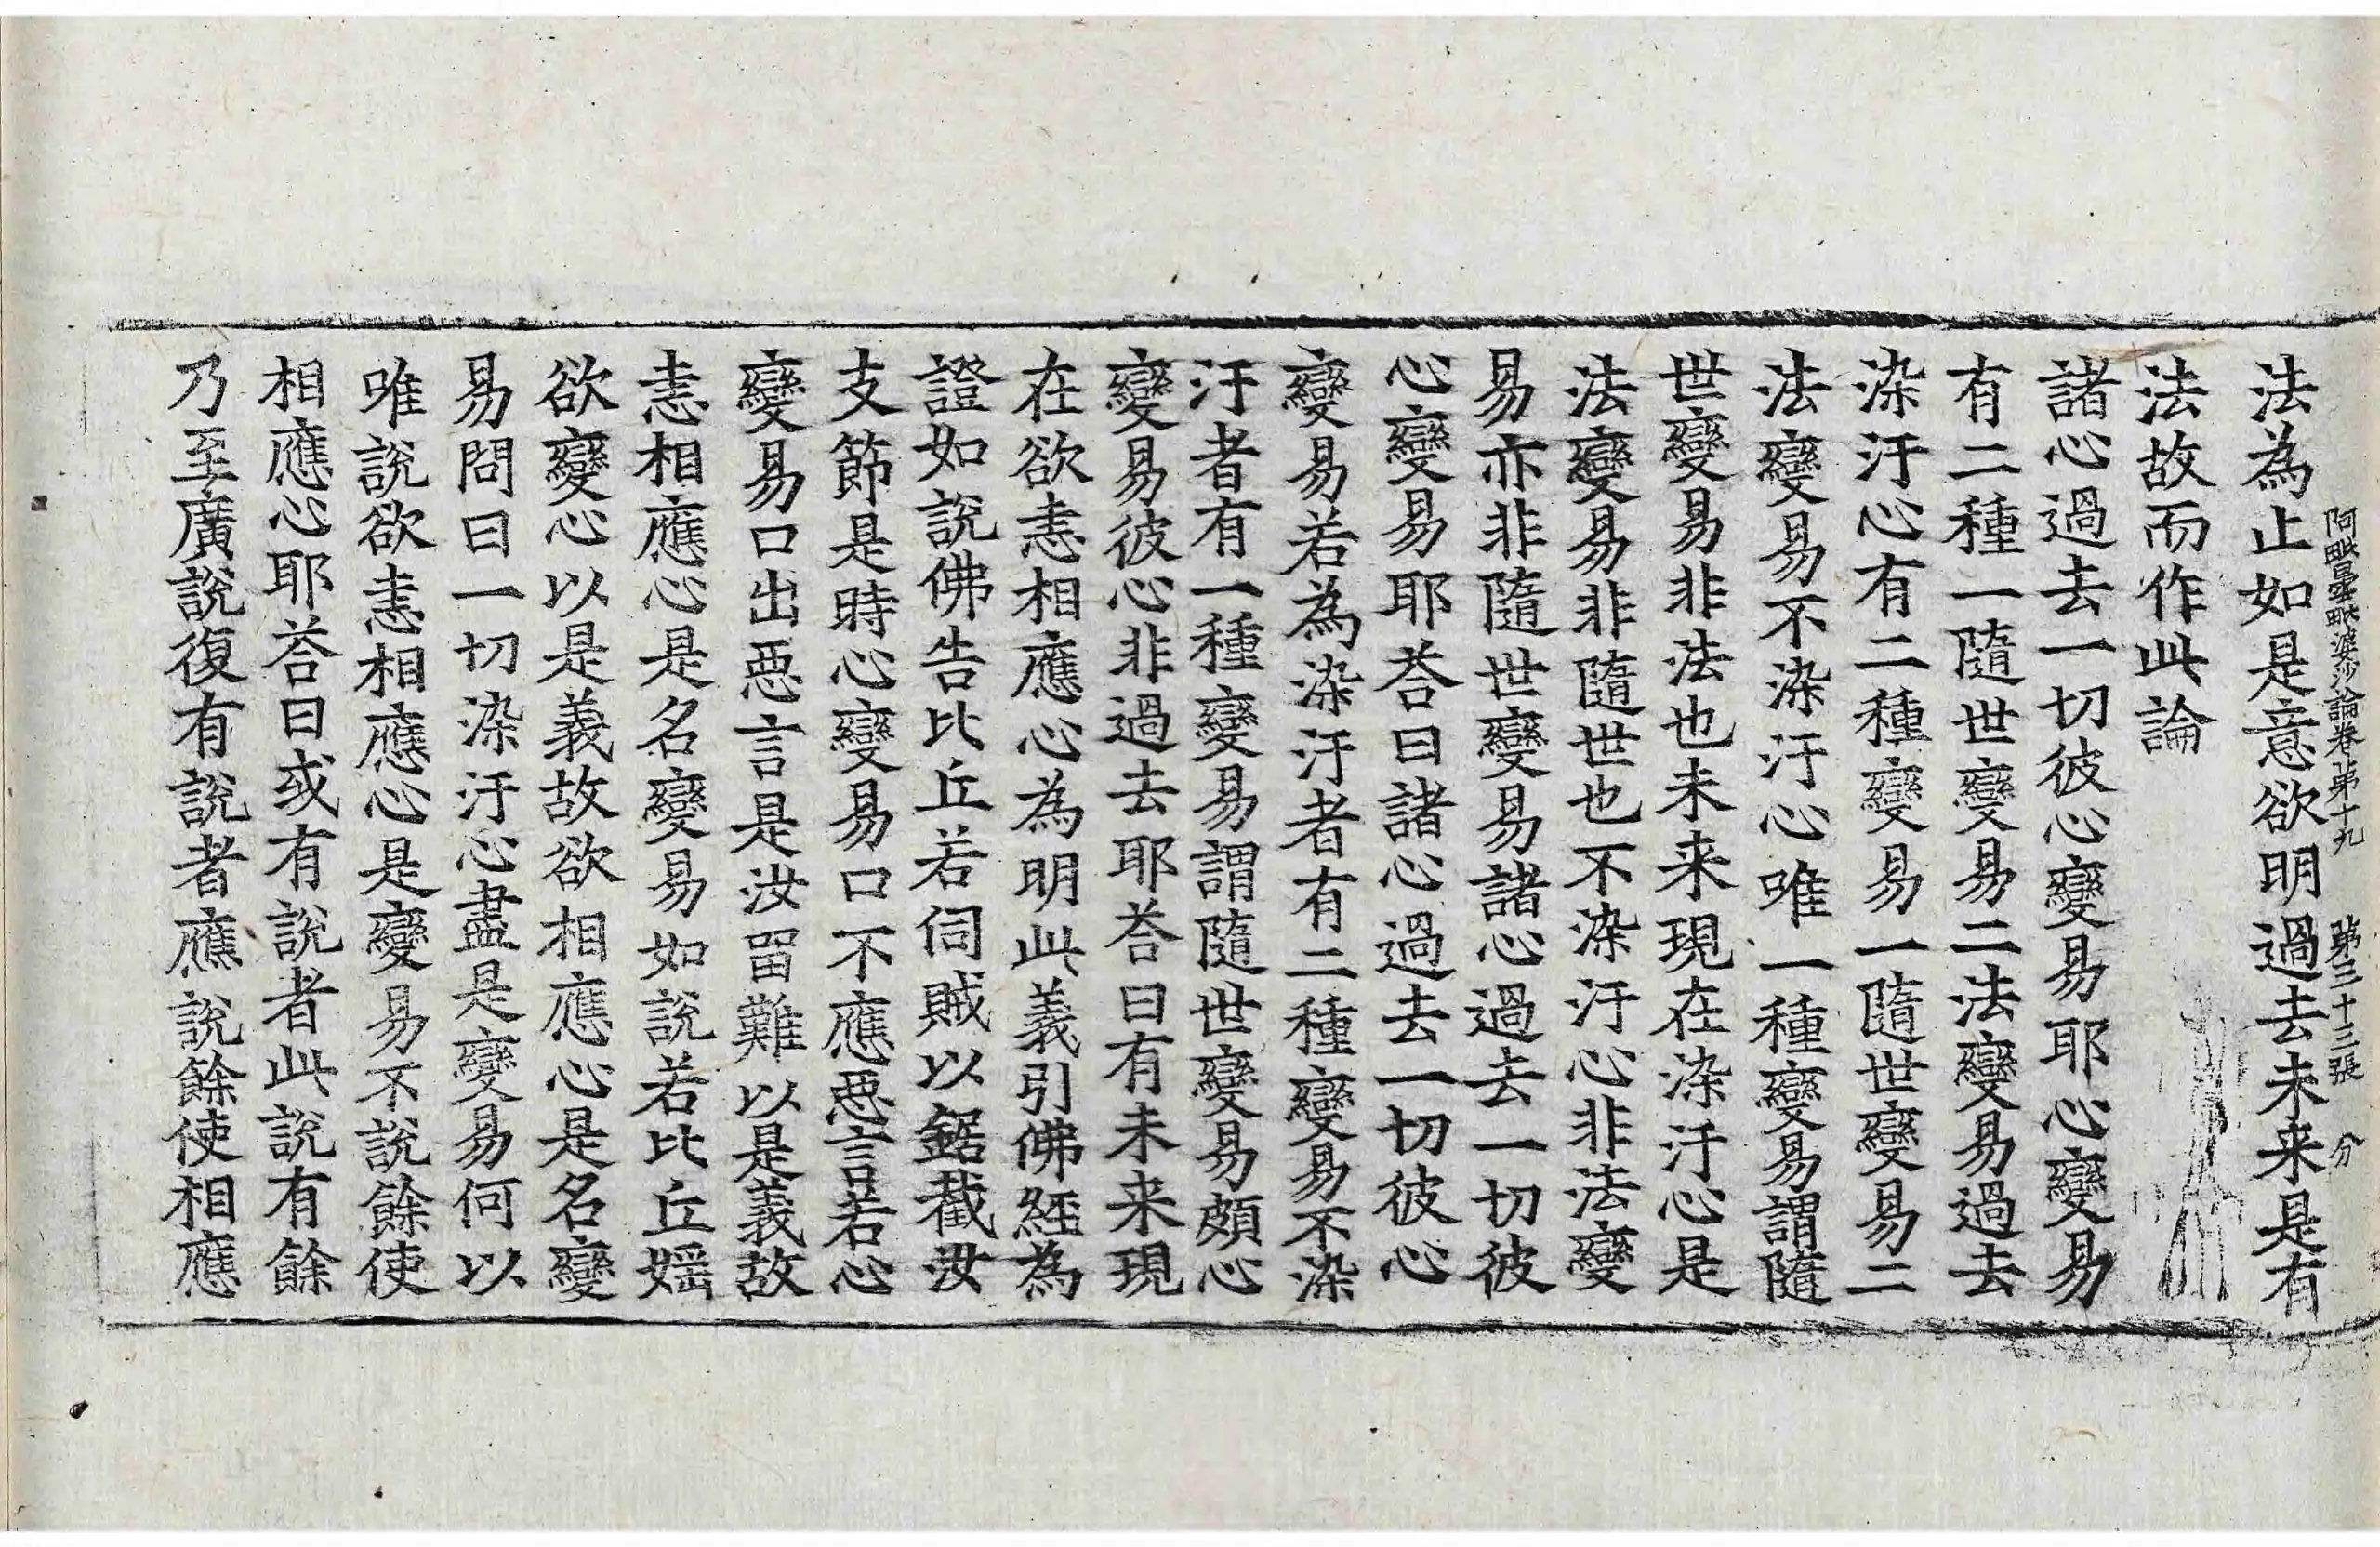 阿毗曇毗婆沙論卷第十九　第三十三張　分
法為止如是意欲明過去未来是有
法故而作此論
諸心過去一切彼心變易耶心變易
有二種一隨世變易二法變易過去
染汙心有二種變易一隨世變易二
法變易不染汙心唯一種變易謂隨
世變易非法也未来現在染汙心是
法變易非隨世也不染汙心非法變
易亦非隨世變易諸心過去一切彼
心變易耶荅曰諸心過去一切彼心
變易若為染汙者有二種變易不染
汙者有一種變易謂隨世變易頗心
變易彼心非過去耶荅曰有未来現
在欲恚相應心為明此義引佛經為
證如說佛告比丘若伺賊以鋸截汝
支節是時心變易口不應惡言若心
變易口出惡言是汝留難以是義故
恚相應心是名變易如說若比丘婬
欲變心以是義故欲相應心是名變
易問曰一切染汙心盡是變易何以
唯說欲恚相應心是變易不說餘使
相應心耶荅曰或有說者此說有餘
乃至廣說復有說者應說餘使相應